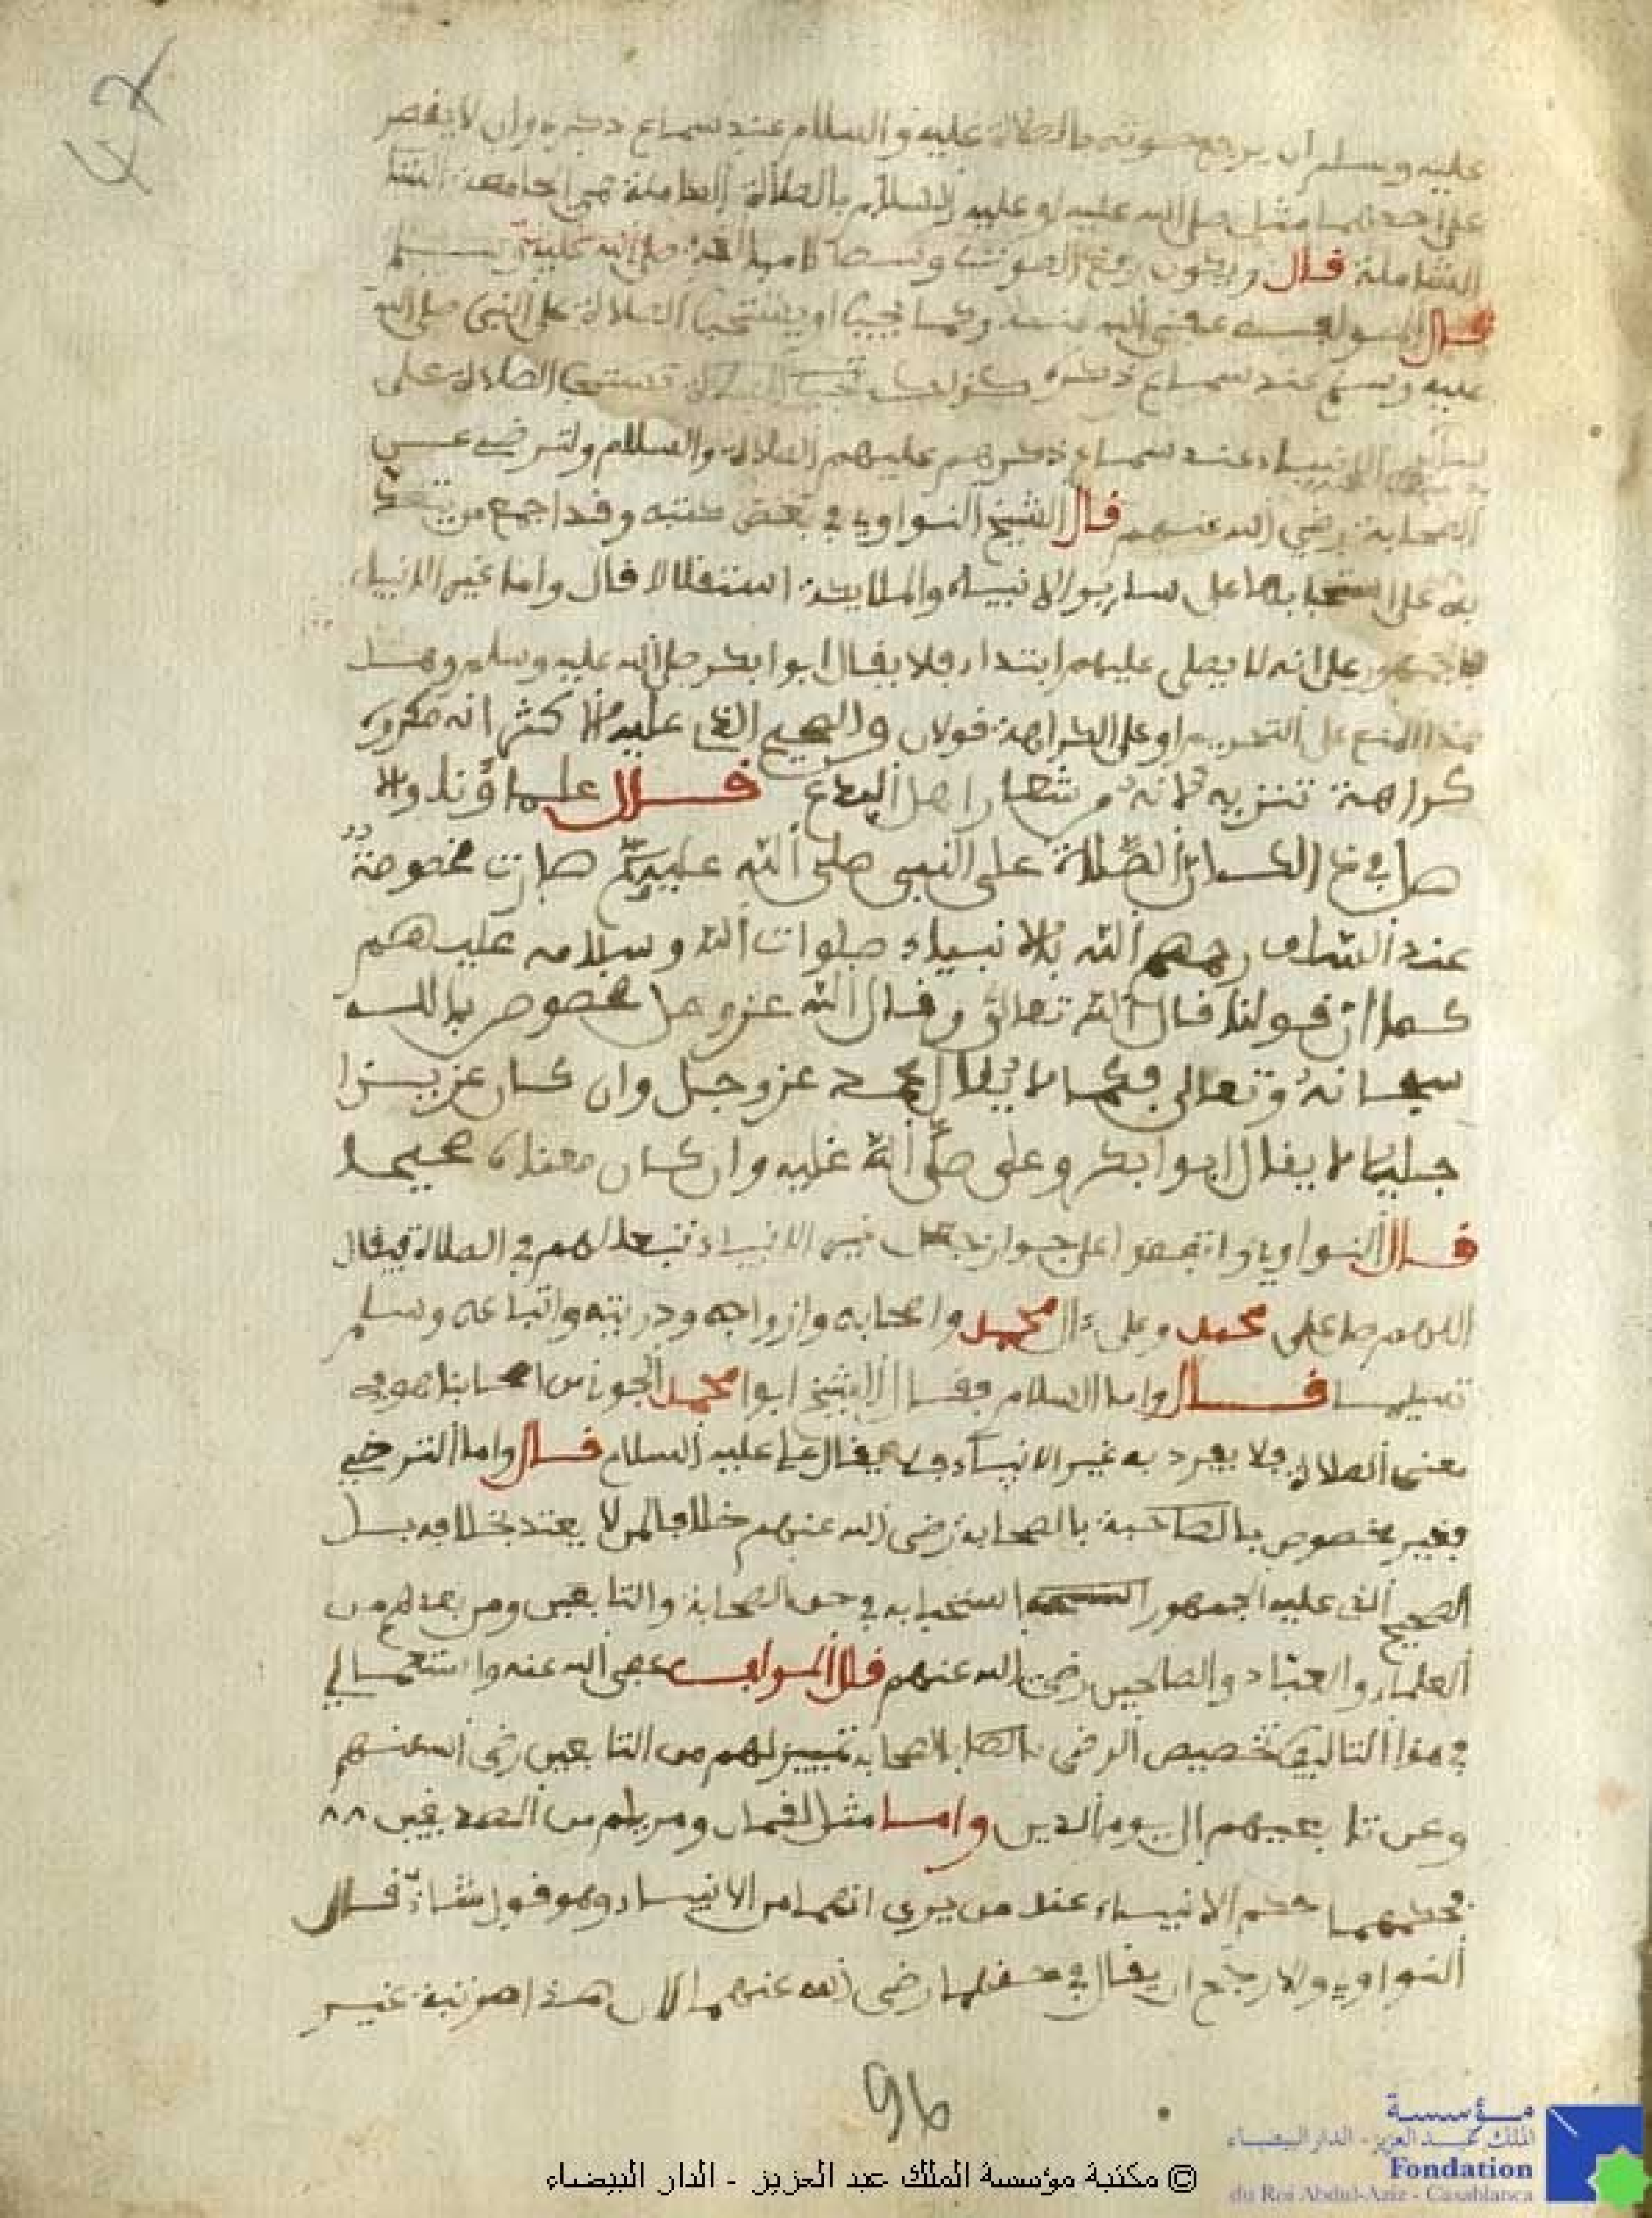 عليه وسلم ان يرجع صوته بالصلاة عليه والسلام عند سماع ذكره وان لا يقصر
على احدهما مثل صلى الله عليه او عليه السلام بالصلاة الكاملة هي الجامعة
الشاملة قال ويكون رفع الصوت وسطا
قال المولف عفى الله عنه وكما تجب او تستحب الصلاة على النبي صلى الله
عليه وسلم عند سماع ذكره كذلك تستحب الصلاة على
الانبياء عند سماع ذكرهم عليهم الصلاة والسلام والترضي عن
الصحابة رضي الله عنهم قال الشيخ النواوي في بعض كتبه وقد اجمع من يعتد
به على استحبابها على ساير الانبياء والملايكة استقلالا قال واما غير الانبياء
فالجمهور على انه لا يصلى عليهم ابتداء فلا يقال ابوا بكر صلى الله عليه وسلم وهل
هذا المنع على التحريم او على الكراهة قولان والصحيح الذي عليه الاكثر انه مكروه
كراهة تنزيه لانه من شعار اهل البدع قال علماؤنا ولا
صل في ذلك ان الصلاة على النبي صلى الله عليه وسلم صارت مخصوصة
عند السلف رحمهم الله بالانبياء صلوات الله وسلامه عليهم
كما ان قولنا قال الله تعالى وقال الله عز وجل مخصوص بالله
سبحانه وتعالى فكما لا يقال محمد عز وجل وان كان عزيزا
جليلا لا يقال ابوا بكر وعلى صلى الله عليه وان كان معناه صحيحا
قال النواوي واتفقوا على جواز جعل غير الانبياء تبعا لهم في الصلاة فيقال
اللهم صل على محمد وعلى ءال محمد واصحابه وازواجه وذريته واتباعه وسلم
تسليما قال واما السلام فقال الشيخ ابوا محمد الجويني من اصحابنا هو في
معنى الصلاة فلا يفرد به غير الانبياء فلا يقال علي عليه السلام قال واما الترضي
فغير مخصوص بالصاحبة بالصحابة رضي الله عنهم خلافا لمن لا يعتد بخلافه بل
الصحيح الذي عليه الجمهور استحبابه في حق الصحابة والتابعين ومن بعدهم من
العلماء والعباد والصالحين رضي الله عنهم قال المولف عفى الله عنه واستعمالي
في هذا التاليف تخصيص الرضى بالصحابة تمييز لهم من التابعين رضي الله عنهم
وعن تابعيهم الى يوم الدين واما مثل لقمان ومريم من الصديقين
فحكمهما حكم الانبياء عند من يرى انهما من الانبياء وهو قول شاذ قال
النواوي والارجح ان يقال في حقهما رضي الله عنهما لان هذا مرتبة غير
96
© مكتبة مؤسسة الملك عبد العزيز - الدار البيضاء
مؤسسة
الملك عبد العزيز - الدار البيضاء
Fondation
du Roi Abdul-Aziz - Casablanca